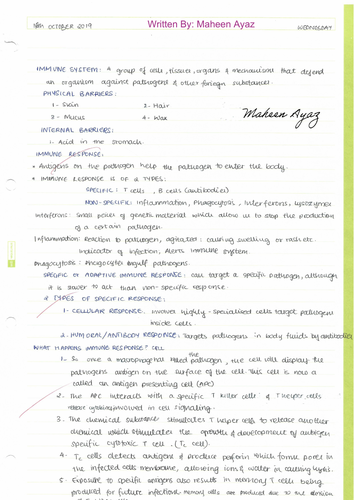 16th OCTOBER 2019
Written By: Maheen Ayaz
WEDNESDAY
IMMUNE SYSTEM: A group of cells, tissues, organs & mechanisms that defend
an organism against pathogens & other foreign substances.
PHYSICAL BARRIERS:
1- Skin 3- Hair
2- Mucus 4- Wax
Maheen Ayaz
INTERNAL BARRIERS:
1. Acid in the stomach.
IMMUNE RESPONSE:
Antigens on the pathogen help the pathogen to enter the body.
IMMUNE RESPONSE IS OF 2 TYPES:
SPECIFIC: T cells, B cells (antibodies)
NON-SPECIFIC: Inflammation, Phagocytosis, Interferons, Lysozymes
Interferons: Small pieces of genetic material which allow us to stop the production
of a certain pathogen.
Inflammation: Reaction to pathogen, agitates: causing swelling or rash etc.
Indicator of infection; Alerts immune system.
Phagocytosis: Phagocytes engulf pathogens.
SPECIFIC OR ADAPTIVE IMMUNE RESPONSE: can target a specific pathogen, although
it is slower to act than non-specific response.
2 TYPES OF SPECIFIC RESPONSE:
1- CELLULAR RESPONSE: involves highly-specialised cells target pathogens
inside cells.
2. HUMORAL/ANTIBODY RESPONSE: Targets pathogens in body fluids by antibodies
WHAT HAPPENS IMMUNE RESPONSE T CELL
1- So once a macrophage killed the pathogen, the cell will display the
pathogens antigen on the surface of the cell. This cell is now a
called an antigen presenting cell (APC)
2. The APC interacts with a specific T killer cells & T helper cells
involved in cell signaling.
3. The chemical substance stimulates T helper cells to release another
chemical which stimulates the growth & development of antigen
specific cytotoxic T cell. (Tc cell).
4. Tc cells detects antigens & produce perforin which forms pores in
the infected cells membrane, allowing ions & water in causing lysis.
5. Exposure to specific antigens also results in memory T cells being
produced for future infections. Memory cells are produced due to the